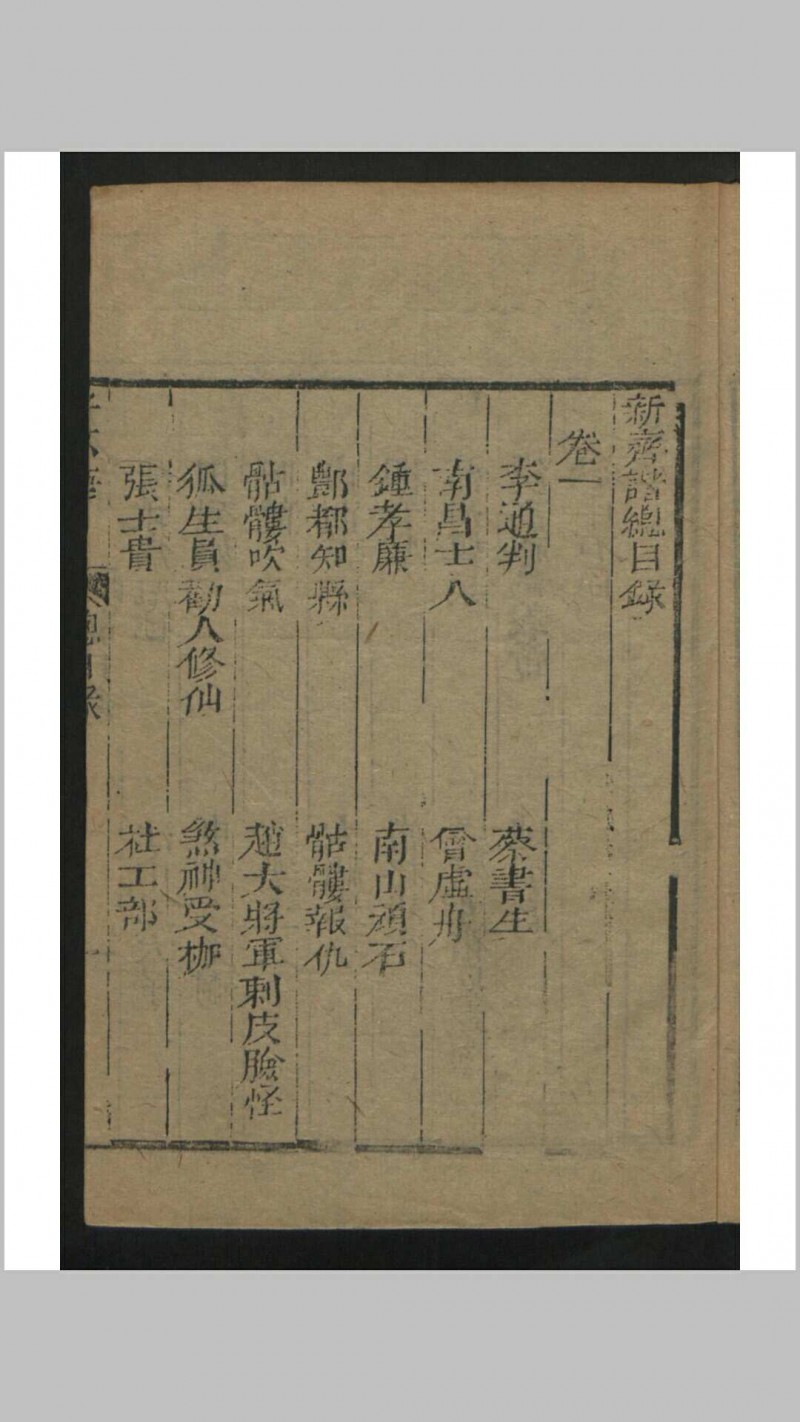 新齊諧總目錄
卷一
李通判
蔡書生
南昌士人
曾虛舟
鍾孝廉
南山頑石
酆都知縣
骷髏報仇
骷髏吹氣
趙大將軍刺皮臉怪
狐生員勸人修仙
煞神受枷
張士貴
杜工部
總目錄
一